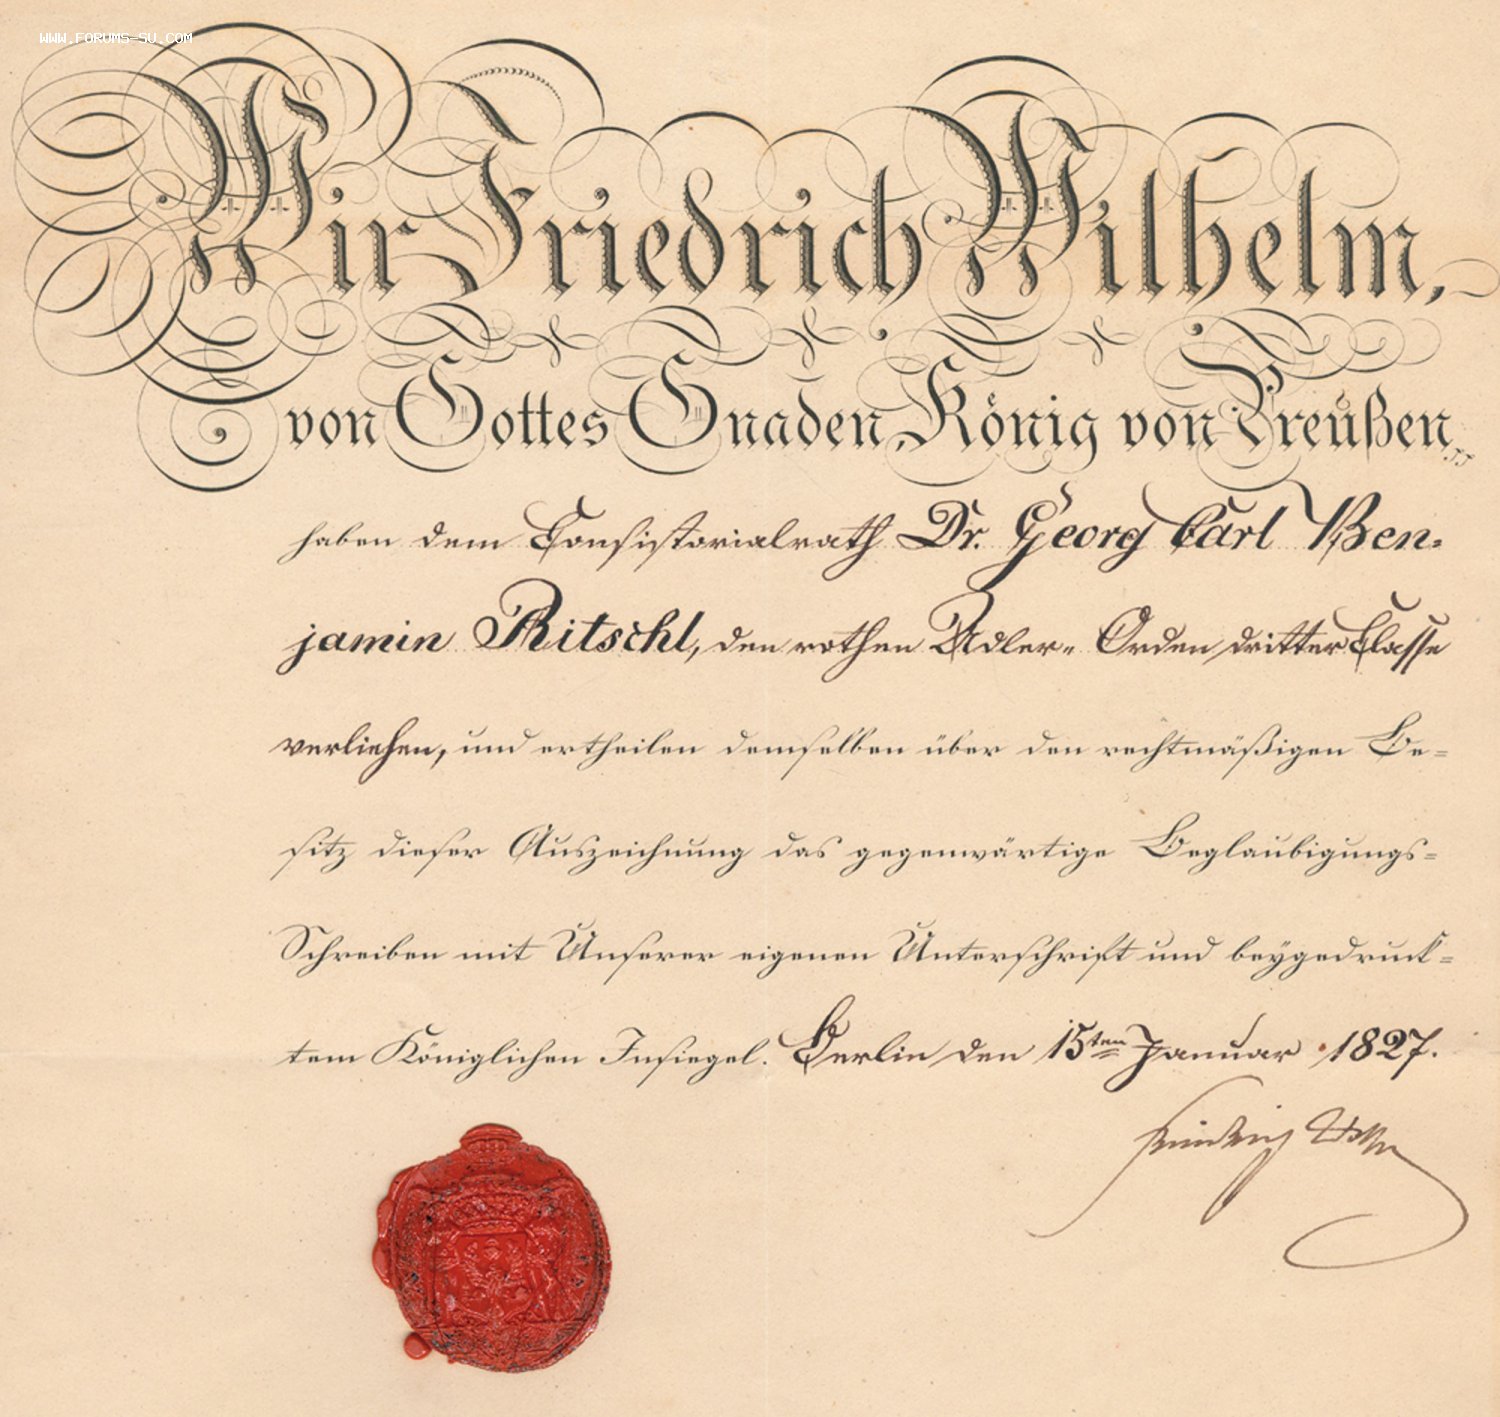 WWW.FORUMS-SU.COM
Wir Friedrich Wilhelm,
von Gottes Gnaden, König von Preußen
haben dem Consistorialrath Dr. Georg Carl Ben-
jamin Ritschl, den rothen Adler- Orden dritter Classe
verliehen, und ertheilen demselben über den rechtmäßigen Be-
sitz dieser Auszeichnung das gegenwärtige Beglaubigungs-
Schreiben mit Unserer eigenen Unterschrift und beygedruck-
tem Königlichen Insiegel. Berlin den 15ten Januar 1827.
Friedrich Wilhelm